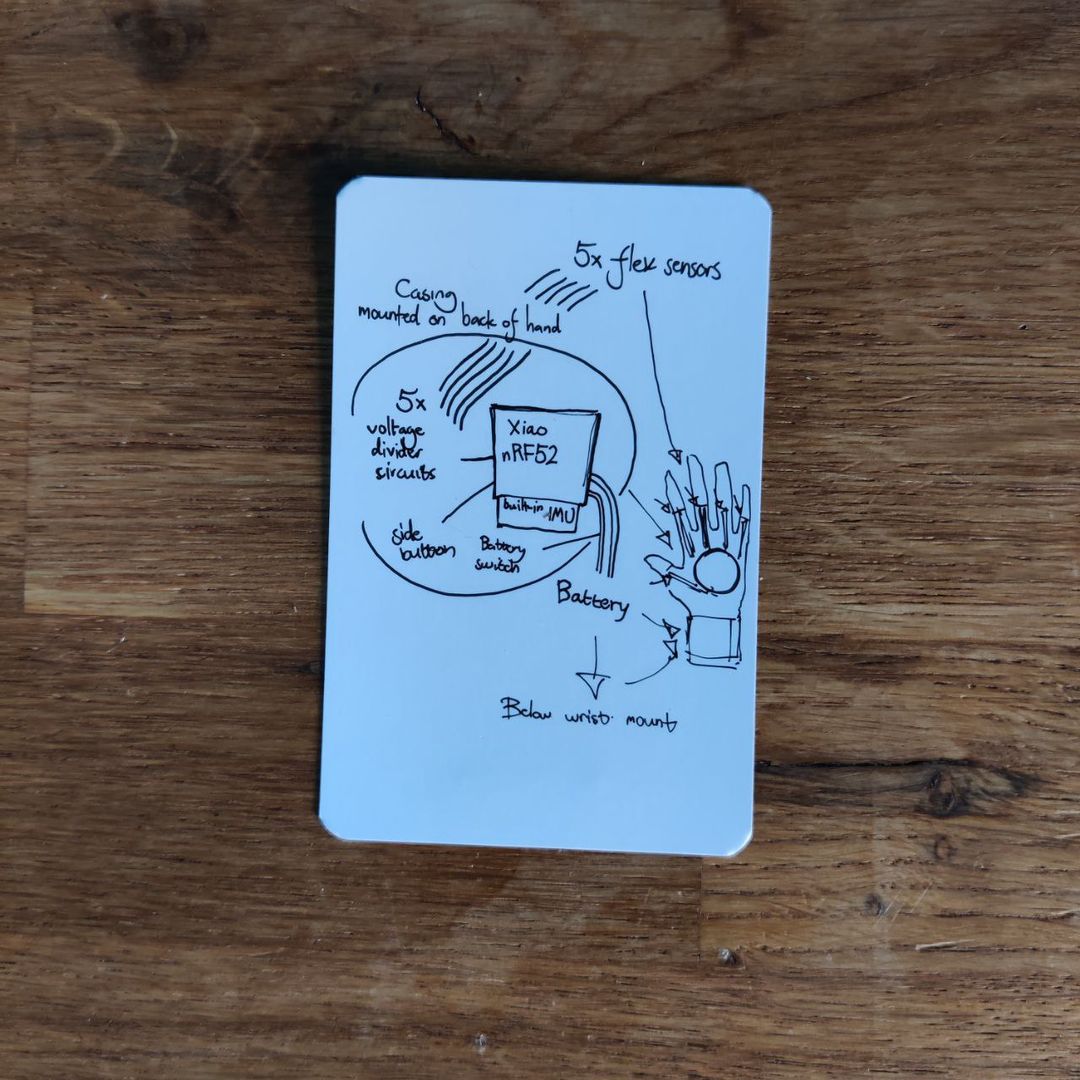 5x flex sensors
Casing
mounted on back of hand
5x
voltage
divider
circuits
Xiao
nRF52
built-in IMU
side
button
Battery
switch
Battery
Below wrist mount